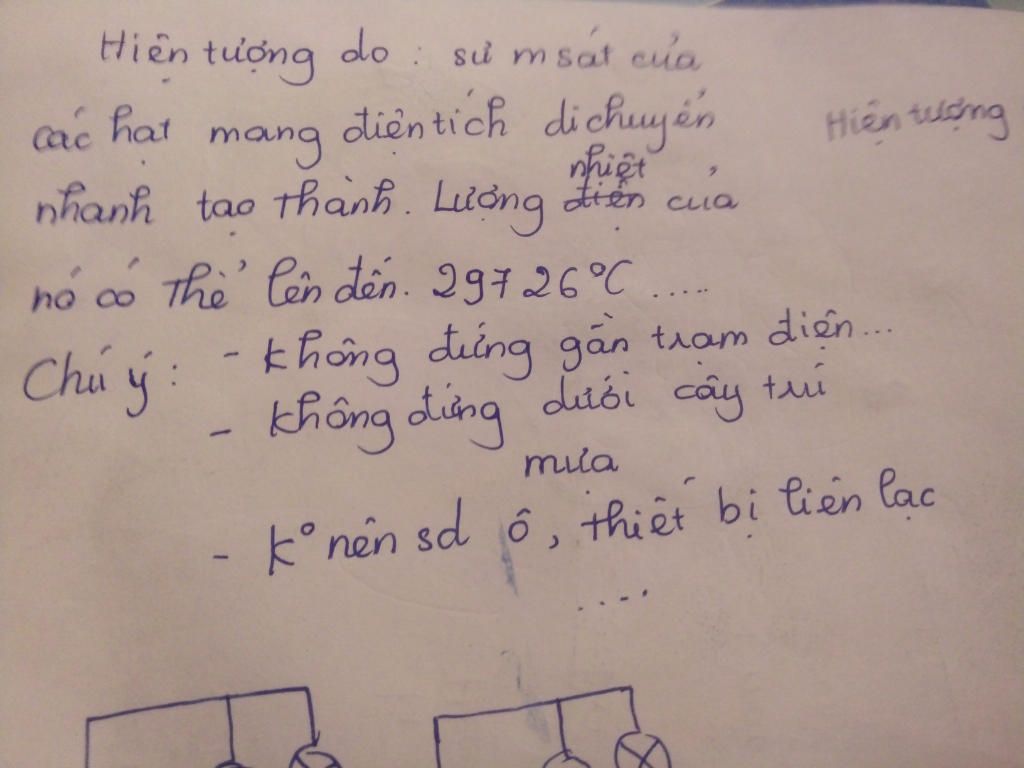 Hiện tượng do : sự m sát của
các hạt mang điện tích di chuyển
Hiện tượng
nhanh tạo thành. Lượng điện nhiệt của
nó có thể lên đến. 29726°C .....
Chú ý : - không đứng gần trạm điện...
- không đứng dưới cây trú
mưa
- k° nên sd ô, thiết bị liên lạc
.....